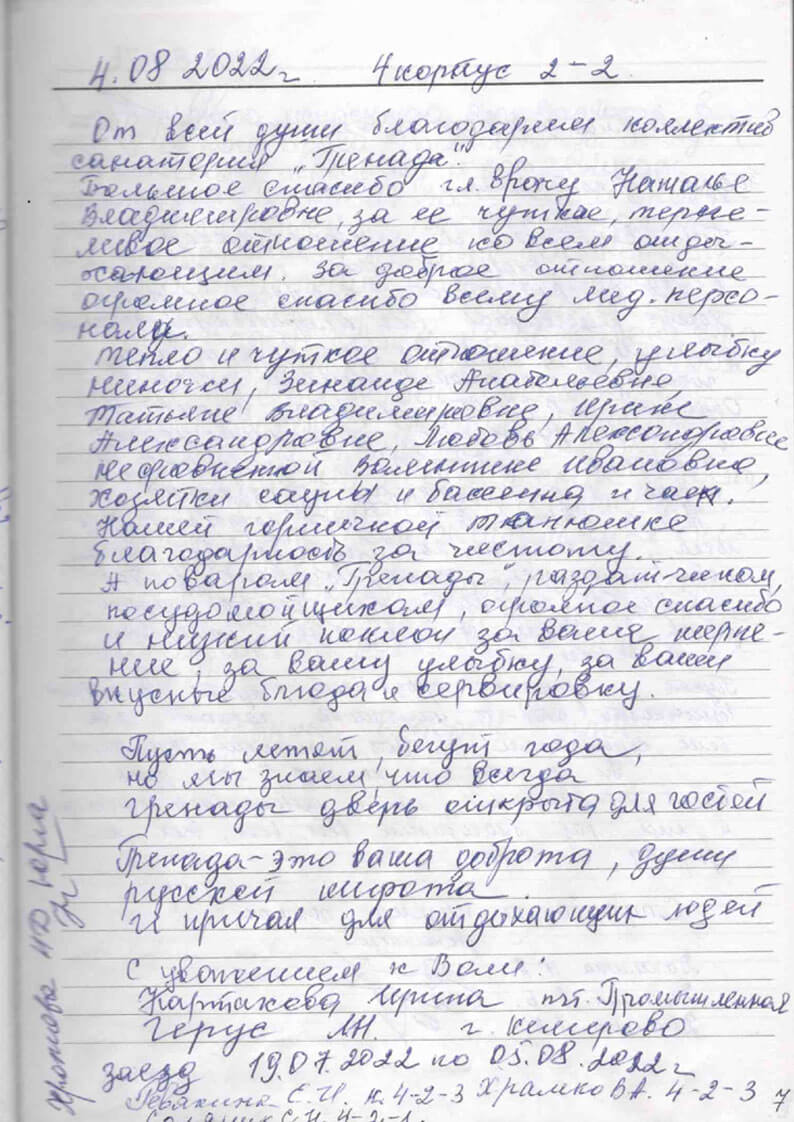 4.08 2022г. 4 корпус 2-2
От всей души благодарим коллектив
санатория „Гренада".
Большое спасибо гл. врачу Наталье
Владимировне, за ее чуткое, терпе-
ливое отношение ко всем отды-
хающим. За доброе отношение
огромное спасибо всему мед. персо-
налу.
тепло и чуткое отношение, улыбку
Ниночки, Зинаиде Анатольевне,
Татьяне Владимировне, Ирине
Александровне, Любовь Александровне
несравненной Валентине Ивановне,
хозяйки сауны и бассейна и чая.
Нашей горничной Танюшке
благодарность за чистоту.
А поварам „Гренады", раздатчикам,
посудомойщикам, огромное спасибо
и низкий поклон за ваше терпе-
ние, за вашу улыбку, за ваши
вкусные блюда и сервировку.
Пусть летят, бегут года,
но мы знаем, что всегда
гренады дверь открыта для гостей
Гренада - это ваша доброта, души
русской широта
и причал для отдыхающих людей
С уважением к Вам:
Карташова Ирина пгт. Промышленная
Герус Л.Н. г. Кемерово
заезд 19.07.2022 по 05.08.2022г
Е.И. к. 4-2-3 Храмко В.А. 4-2-3 7
С.Н. 4-2-1.